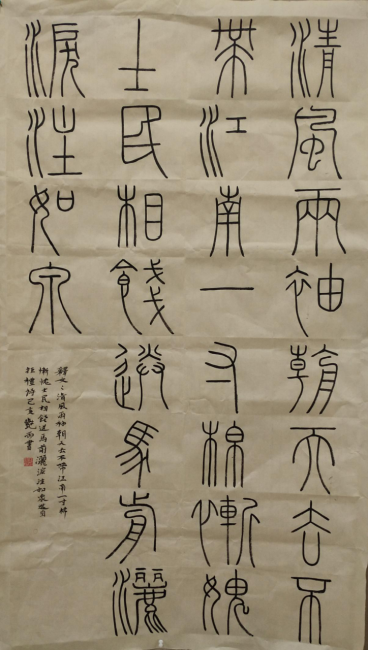 清風兩袖朝天去不
帶江南一寸棉慚愧
士民相餞送馬前灑
淚注如泉
釋文：清風兩袖朝天去不帶江南一寸棉
慚愧士民相餞送馬前灑淚注如泉
拒禮詩己亥書